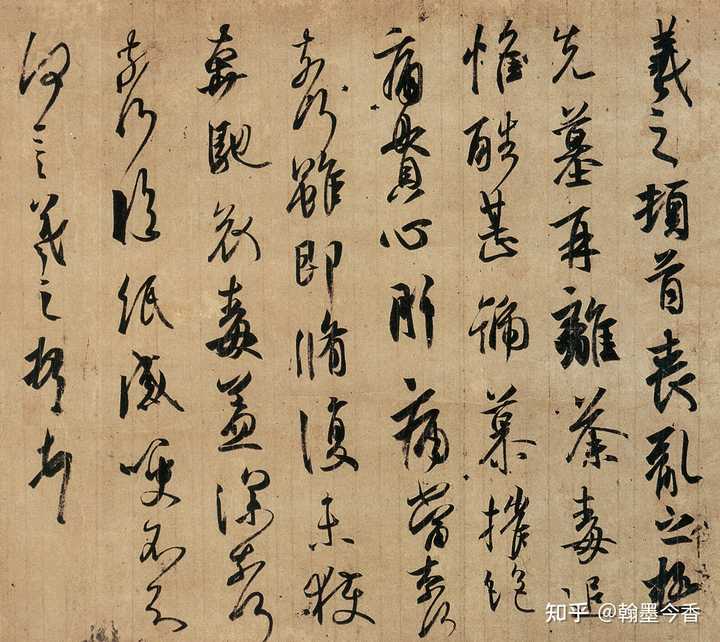 羲之頓首喪亂之極
先墓再離荼毒追
惟酷甚號慕摧絕
痛貫心肝痛當奈何
奈何雖即脩復未獲
奔馳哀毒益深奈何
奈何臨紙感哽不知
何言羲之頓首頓首
知乎 @翰墨今香